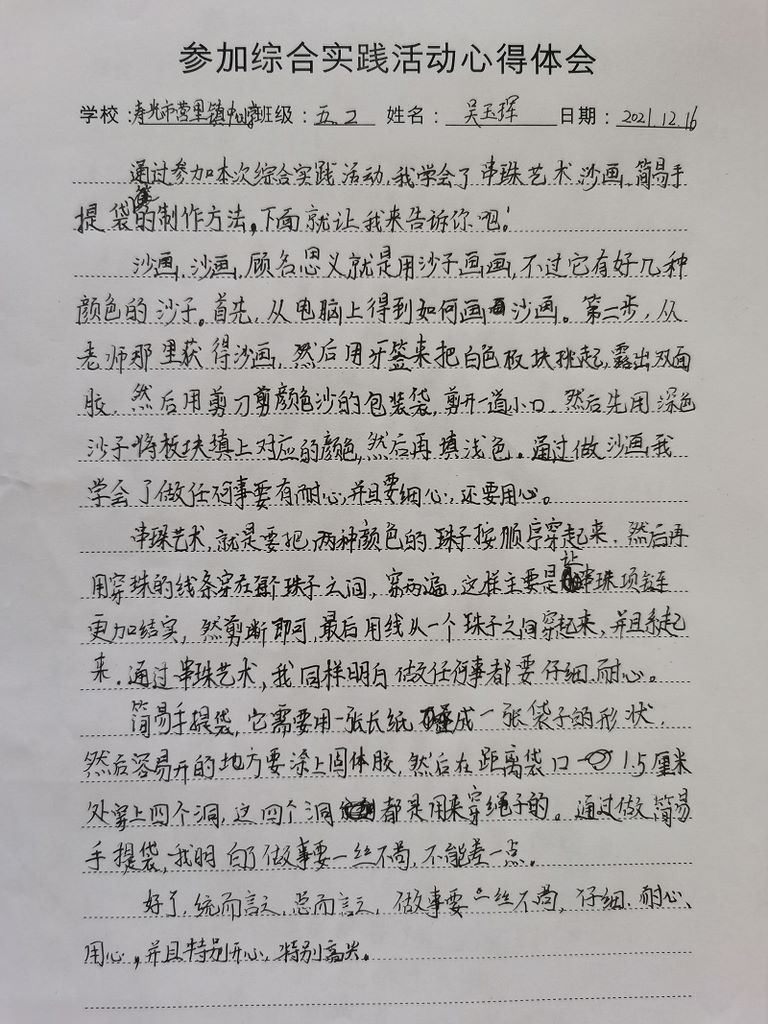 参加综合实践活动心得体会
学校：寿光市营里镇中心学班级：五.2 姓名：吴玉珲 日期：2021.12.16
通过参加本次综合实践活动,我学会了串珠艺术、沙画、简易手
提袋等的制作方法,下面就让我来告诉你吧!
沙画,沙画,顾名思义就是用沙子画画,不过它有好几种
颜色的沙子。首先,从电脑上得到如何画沙画。第二步,从
老师那里获得沙画,然后用牙签来把白色板块挑起,露出双面
胶,然后用剪刀剪颜色沙的包装袋,剪开一道小口,然后先用深色
沙子将板块填上对应的颜色,然后再填浅色。通过做沙画我
学会了做任何事要有耐心,并且要细心,还要用心。
串珠艺术,就是要把两种颜色的珠子按顺序穿起来,然后再
用穿珠的线条穿在每个珠子之间,穿两遍,这样主要是让串珠项链
更加结实,然剪断即可,最后用线从一个珠子之间穿起来,并且系起
来.通过串珠艺术,我同样明白做任何事都要仔细、耐心。
简易手提袋,它需要用一张长纸成一张袋子的形状,
然后容易开的地方要涂上固体胶,然后在距离袋口1.5厘米
处穿上四个洞,这四个洞都是用来穿绳子的。通过做简易
手提袋,我明白了做事要一丝不苟,不能差一点。
好了,统而言之,总而言之,做事要一丝不苟,仔细、耐心、
用心,并且特别开心,特别高兴。